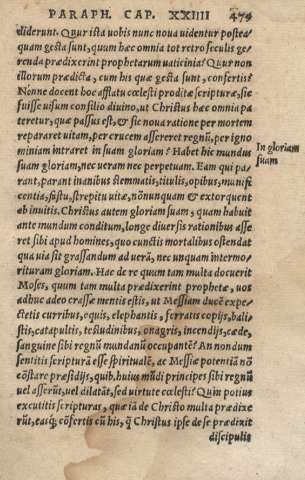 PARAPH. CAP. XXIIII 479
diderunt. Qur ista uobis nunc noua uidentur postea⸗
quam gesta sunt, quum hæc omnia tot retro seculis ge⸗
renda prædixerint prophetarum uaticinia? Qur non
illorum prædicta, cum his quæ gesta sunt, confertis?
Nonne docent hoc afflatu cœlesti proditæ scripturæ, sic
fuisse uisum consilio diuino, ut Christus hæc omnia pa
teretur, quæ passus est, & sic noua ratione per mortem
repararet uitam, per crucem assereret regnũ, per igno
miniam intraret in suam gloriam? Habet hic mundus
suam gloriam, nec ueram nec perpetuam. Eam qui pa⸗
rant, parant inanibus stemmatis, titulis, opibus, munifi
centia, fastu, strepitu uitæ, nõnunquam & extorquent
ab inuitis. Christus autem gloriam suam, quam habuit
ante mundum conditum, longe diuersis rationibus asse
ret sibi apud homines, quo cunctis mortalibus ostendat
qua uia sit grassandum ad uerã, nec unquam intermo⸗
rituram gloriam. Hac de re quum tam multa docuerit
Moses, quum tam multa prædixerint prophetæ, uos
adhuc adeo crassæ mentis estis, ut Messiam ducẽ expe⸗
ctetis curribus, equis, elephantis, ferratis copijs, bali⸗
stis, catapultis, testudinibus, onagris, incendijs, cæde,
sanguine sibi regnũ mundanũ occupantẽ? An nondum
sentitis scripturã esse spiritualẽ, ac Messiæ potentiã nõ
cõstare præsidijs, quib. huius mũdi principes sibi regnũ
uel asserũt, uel dilatãt, sed uirtute cœlesti? Quin potius
excutitis scripturas, quæ iã de Christo multa prædixe
rũt, easq́; cõfertis cũ his, q̃ Christus ipse de se prædixit
discipulis
In gloriam
suam